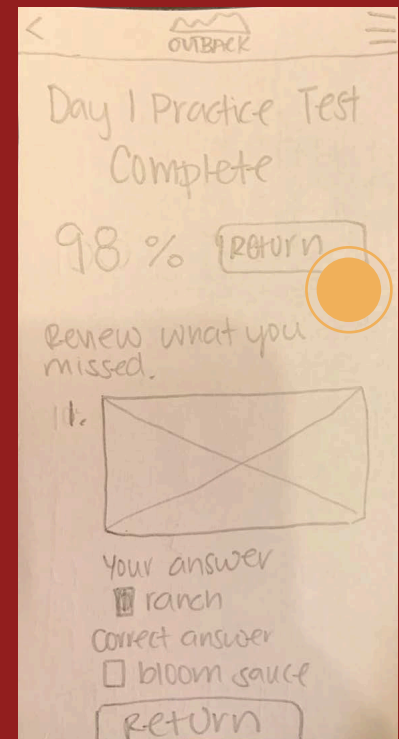 <
OUTBACK
Day 1 Practice Test
Complete
98 % Return
Review what you
missed.
11.
Your answer
ranch
Correct answer
bloom sauce
Return